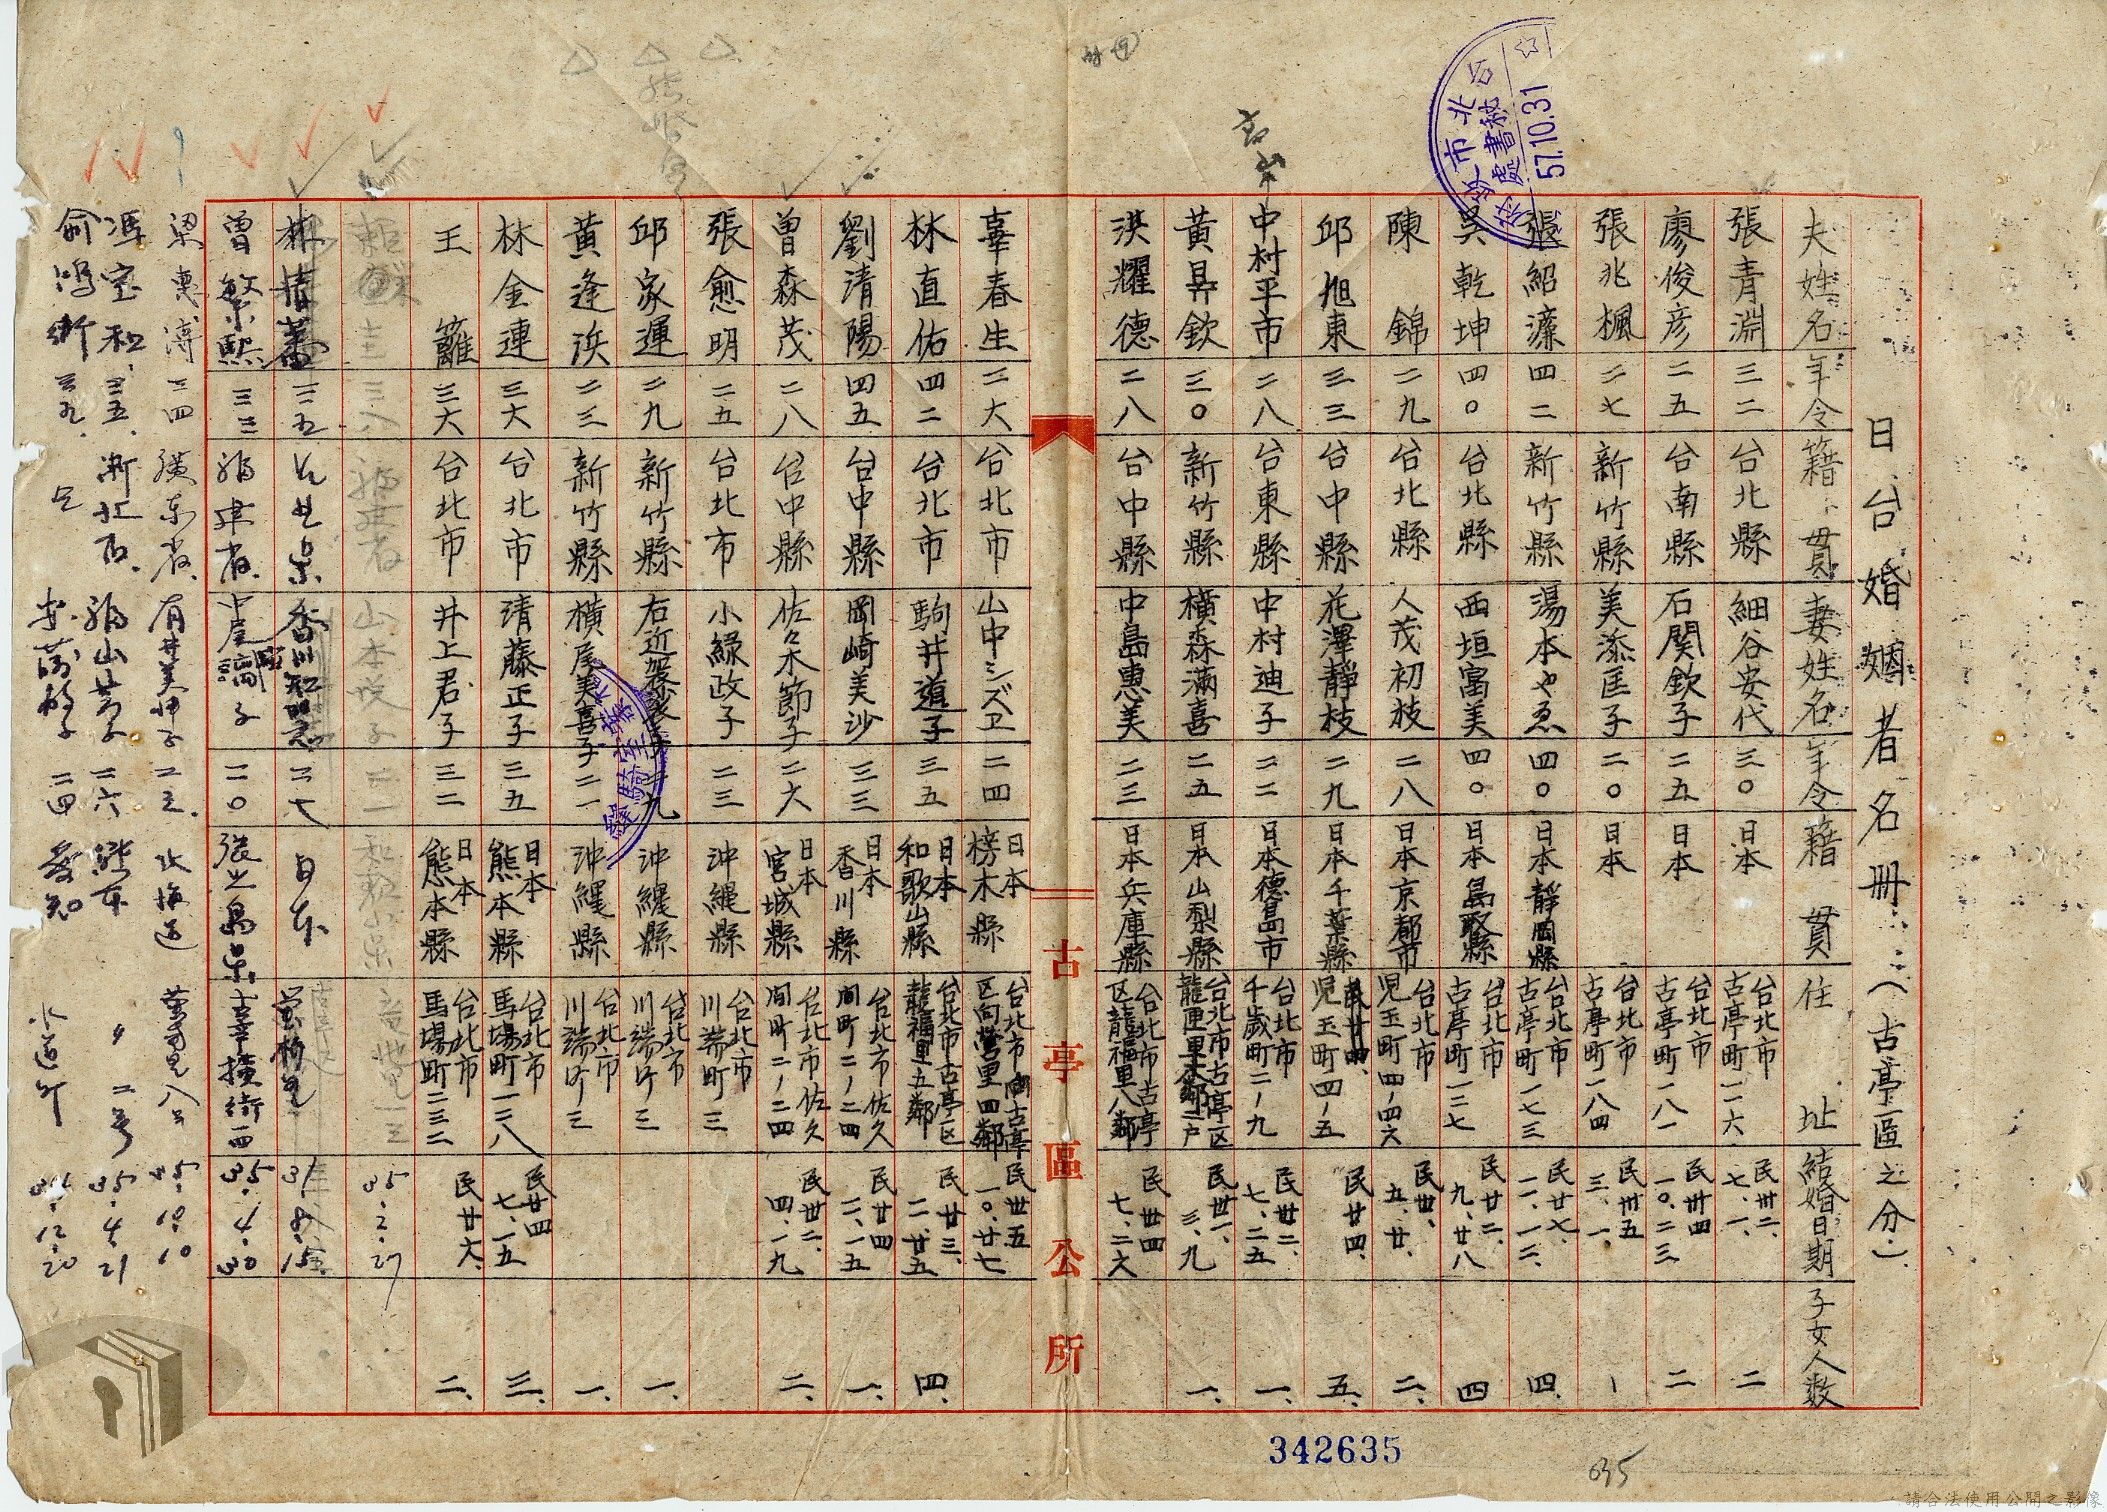 日台婚姻者名冊：（古亭區之分）
夫姓名 年令 籍貫 妻姓名 年令 籍貫 住址 結婚日期 子女人数
張青淵 三二 台北縣 細谷安代 三〇 日本 台北市古亭町一二六 民卅二、七、一、 二
廖俊彦 二五 台南縣 石関欽子 二五 日本 台北市古亭町一八一 民卅四 一〇、二三 二
張兆楓 二七 新竹縣 美添匡子 二〇 日本 台北市古亭町一八四 民卅五 三、一、 一
張紹濂 四二 新竹縣 湯本やゑ 四〇 日本靜岡縣 台北市古亭町一七三 民廿七、一一、一二、 四、
吳乾坤 四〇 台北縣 西垣富美 四〇 日本鳥取縣 台北市古亭町一三七 民廿二、九、廿八 四
陳錦 二九 台北縣 人茂初枝 二八 日本京都市 台北市児玉町四ノ四六 民卅、五、廿、 二、
邱旭東 三三 台中縣 花澤靜枝 二九 日本千葉縣 児玉町四ノ五 民廿四、 五、
中村平市 二八 台東縣 中村迪子 二二 日本德島市 台北市千歲町二ノ九 民卅二、七、二五 一、
黃昇欽 三〇 新竹縣 橫森滿喜 二五 日本山梨縣 台北市古亭区龍匣里 民卅一、三、九 一、
洪耀德 二八 台中縣 中島惠美 二三 日本兵庫縣 台北市古亭区龍福里八鄰 民卅四 七、二六
古亭區公所
辜春生 二六 台北市 山中シズヱ 二四 日本榜木縣 台北市古亭区向營里四鄰 民卅五 一〇、廿七
林直佑 四二 台北市 駒井道子 三五 日本和歌山縣 台北市古亭区龍福里五鄰 民廿三、一一、廿五 四、
劉清陽 四五 台中縣 岡崎美沙 三三 日本香川縣 台北市佐久間町二ノ二四 民廿四 二、一五 一、
曾森茂 二八 台中縣 佐久木節子 二六 日本宮城縣 台北市佐久間町二ノ二四 民卅二、四、一九 二、
張愈明 二五 台北市 小綠政子 二三 沖縄縣 台北市川端町三
邱家運 二九 新竹縣 右近 二九 沖縄縣 台北市川端町三 一、
黃逢浜 二三 新竹縣 橫尾美喜子 二一 沖縄縣 台北市川端町三 一、
林金連 三六 台北市 請藤正子 三五 日本熊本縣 台北市馬場町一三八 民廿四 七、一五 三、
王籬 三六 台北市 井上君子 三二 日本熊本縣 台北市馬場町二三二 民廿六、 二、
三八 福建省 山本悦子 三一 和歌山県 35.2.27
林清 三五 台北県 香川 二七 日本 螢橋里 31.8.15
曾繁熙 三三 福建省 子 二〇 35.4.30
梁惠 二四 廣東省 有井美 子 二三 北海道 35.10.10
馮宝和 三五 浙江 福山 子 二六 熊本 〃 二号 35.4.21
俞鴻 三九 子 二四 愛知 水道町 12.20
台北市政府秘書處
57.10.31
342635
635
請合法使用公開之影像